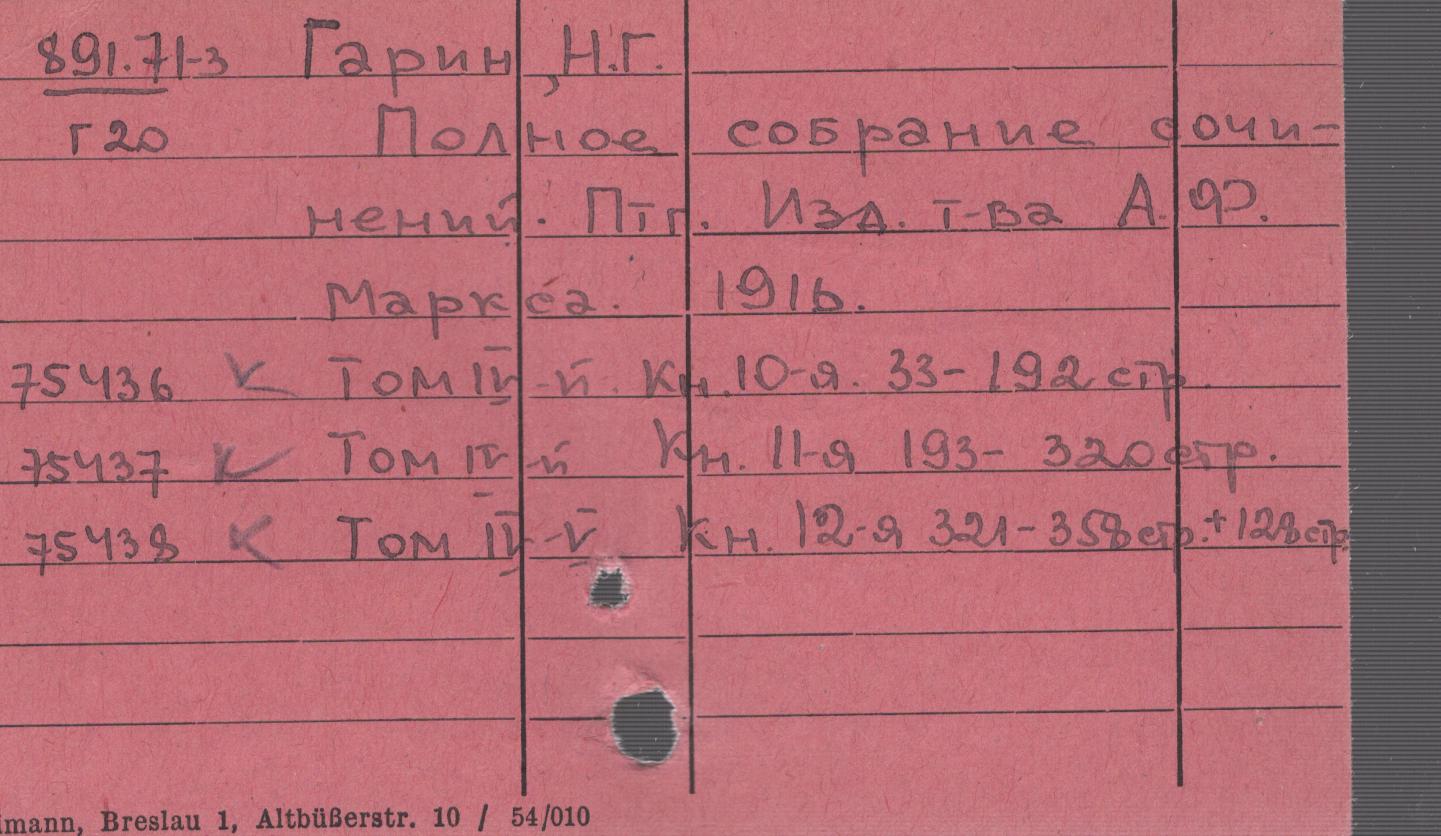 891.71-3 Гарин, Н.Г.
Г20 Полное собрание сочи-
нений. Птг. Изд. т-ва А.Ф.
Маркса. 1916.
75436 Том IV-й. Кн. 10-я. 33-192 стр.
75437 Том IV-й Кн. 11-я 193- 320 стр.
75438 Том IV-й Кн. 12-я 321-358 стр.+128 стр.
imann, Breslau 1, Altbüßerstr. 10 / 54/010